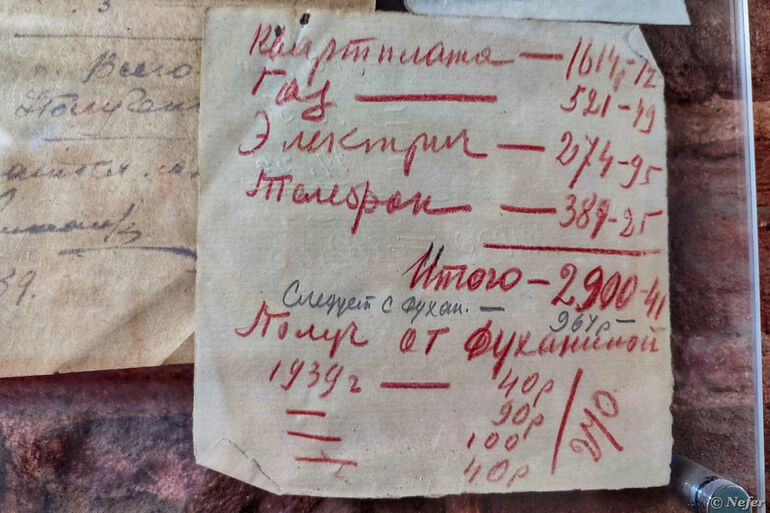 3
Всего
Получен
39.
Квартплата — 1614р-72
Газ — 521-49
Электрич — 274-95
Телефон — 389-25
Итого — 2900-41
Следует с Фухан. — 967р —
Получ от Фуханиной
1939 г — 40р
— 90р
— 100
— 40р
270
© Nefer